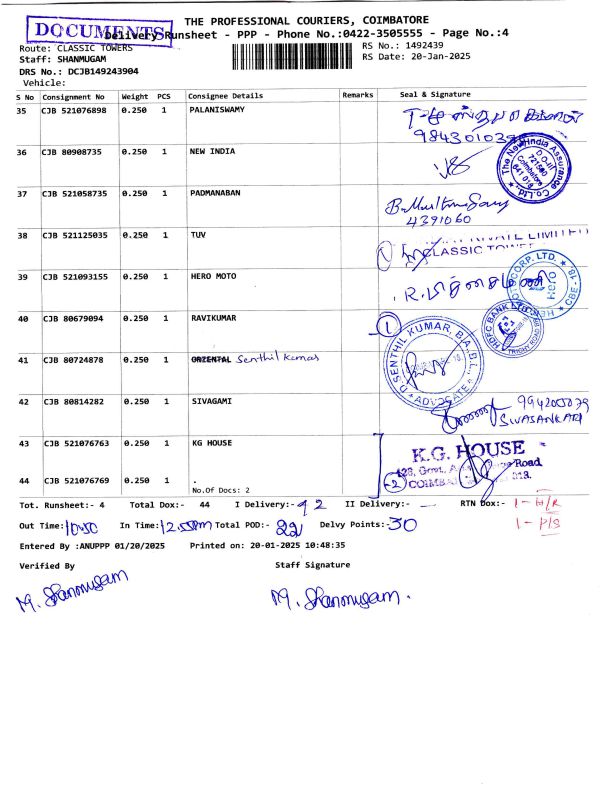 THE PROFESSIONAL COURIERS, COIMBATORE
DOCUMENTS
Delivery Runsheet - PPP - Phone No.:0422-3505555 - Page No.:4
Route: CLASSIC TOWERS
RS No.: 1492439
Staff: SHANMUGAM
RS Date: 20-Jan-2025
DRS No.: DCJB149243904
Vehicle:
S No Consignment No Weight PCS Consignee Details Remarks Seal & Signature
35 CJB 521076898 0.250 1 PALANISWAMY
36 CJB 80908735 0.250 1 NEW INDIA
The New India Assurance Co. Ltd.
D.O-III
721500
Coimbatore
37 CJB 521058735 0.250 1 PADMANABAN
4391060
38 CJB 521125035 0.250 1 TUV
PRIVATE LIMITED
CLASSIC TOWER
39 CJB 521093155 0.250 1 HERO MOTO
40 CJB 80679094 0.250 1 RAVIKUMAR
1
HDFC BANK LTD
41 CJB 80724878 0.250 1 ORIENTAL Senthil Kumar
D. SENTHIL KUMAR, B.A.B.L.,
ADVOCATE
42 CJB 80814282 0.250 1 SIVAGAMI
SIVASANKARI
43 CJB 521076763 0.250 1 KG HOUSE
K.G. HOUSE
44 CJB 521076769 0.250 1 .
No.Of Docs: 2
-2
Tot. Runsheet:- 4 Total Dox:- 44 I Delivery:- 42 II Delivery:- — RTN Dox:- 1 - H/R
1 - P/S
Out Time: 10.50 In Time: 12.55PM Total POD:- 22 Delvy Points:- 30
Entered By :ANUPPP 01/20/2025 Printed on: 20-01-2025 10:48:35
Verified By Staff Signature
M. Shanmugam M. Shanmugam.